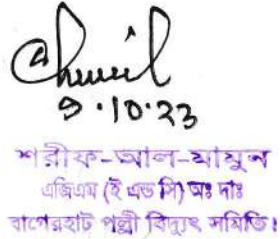 9.10.23
শরীফ-আল-মামুন
এজিএম (ই এন্ড পি) অঃ দাঃ
বাগেরহাট পল্লী বিদ্যুৎ সমিতি।